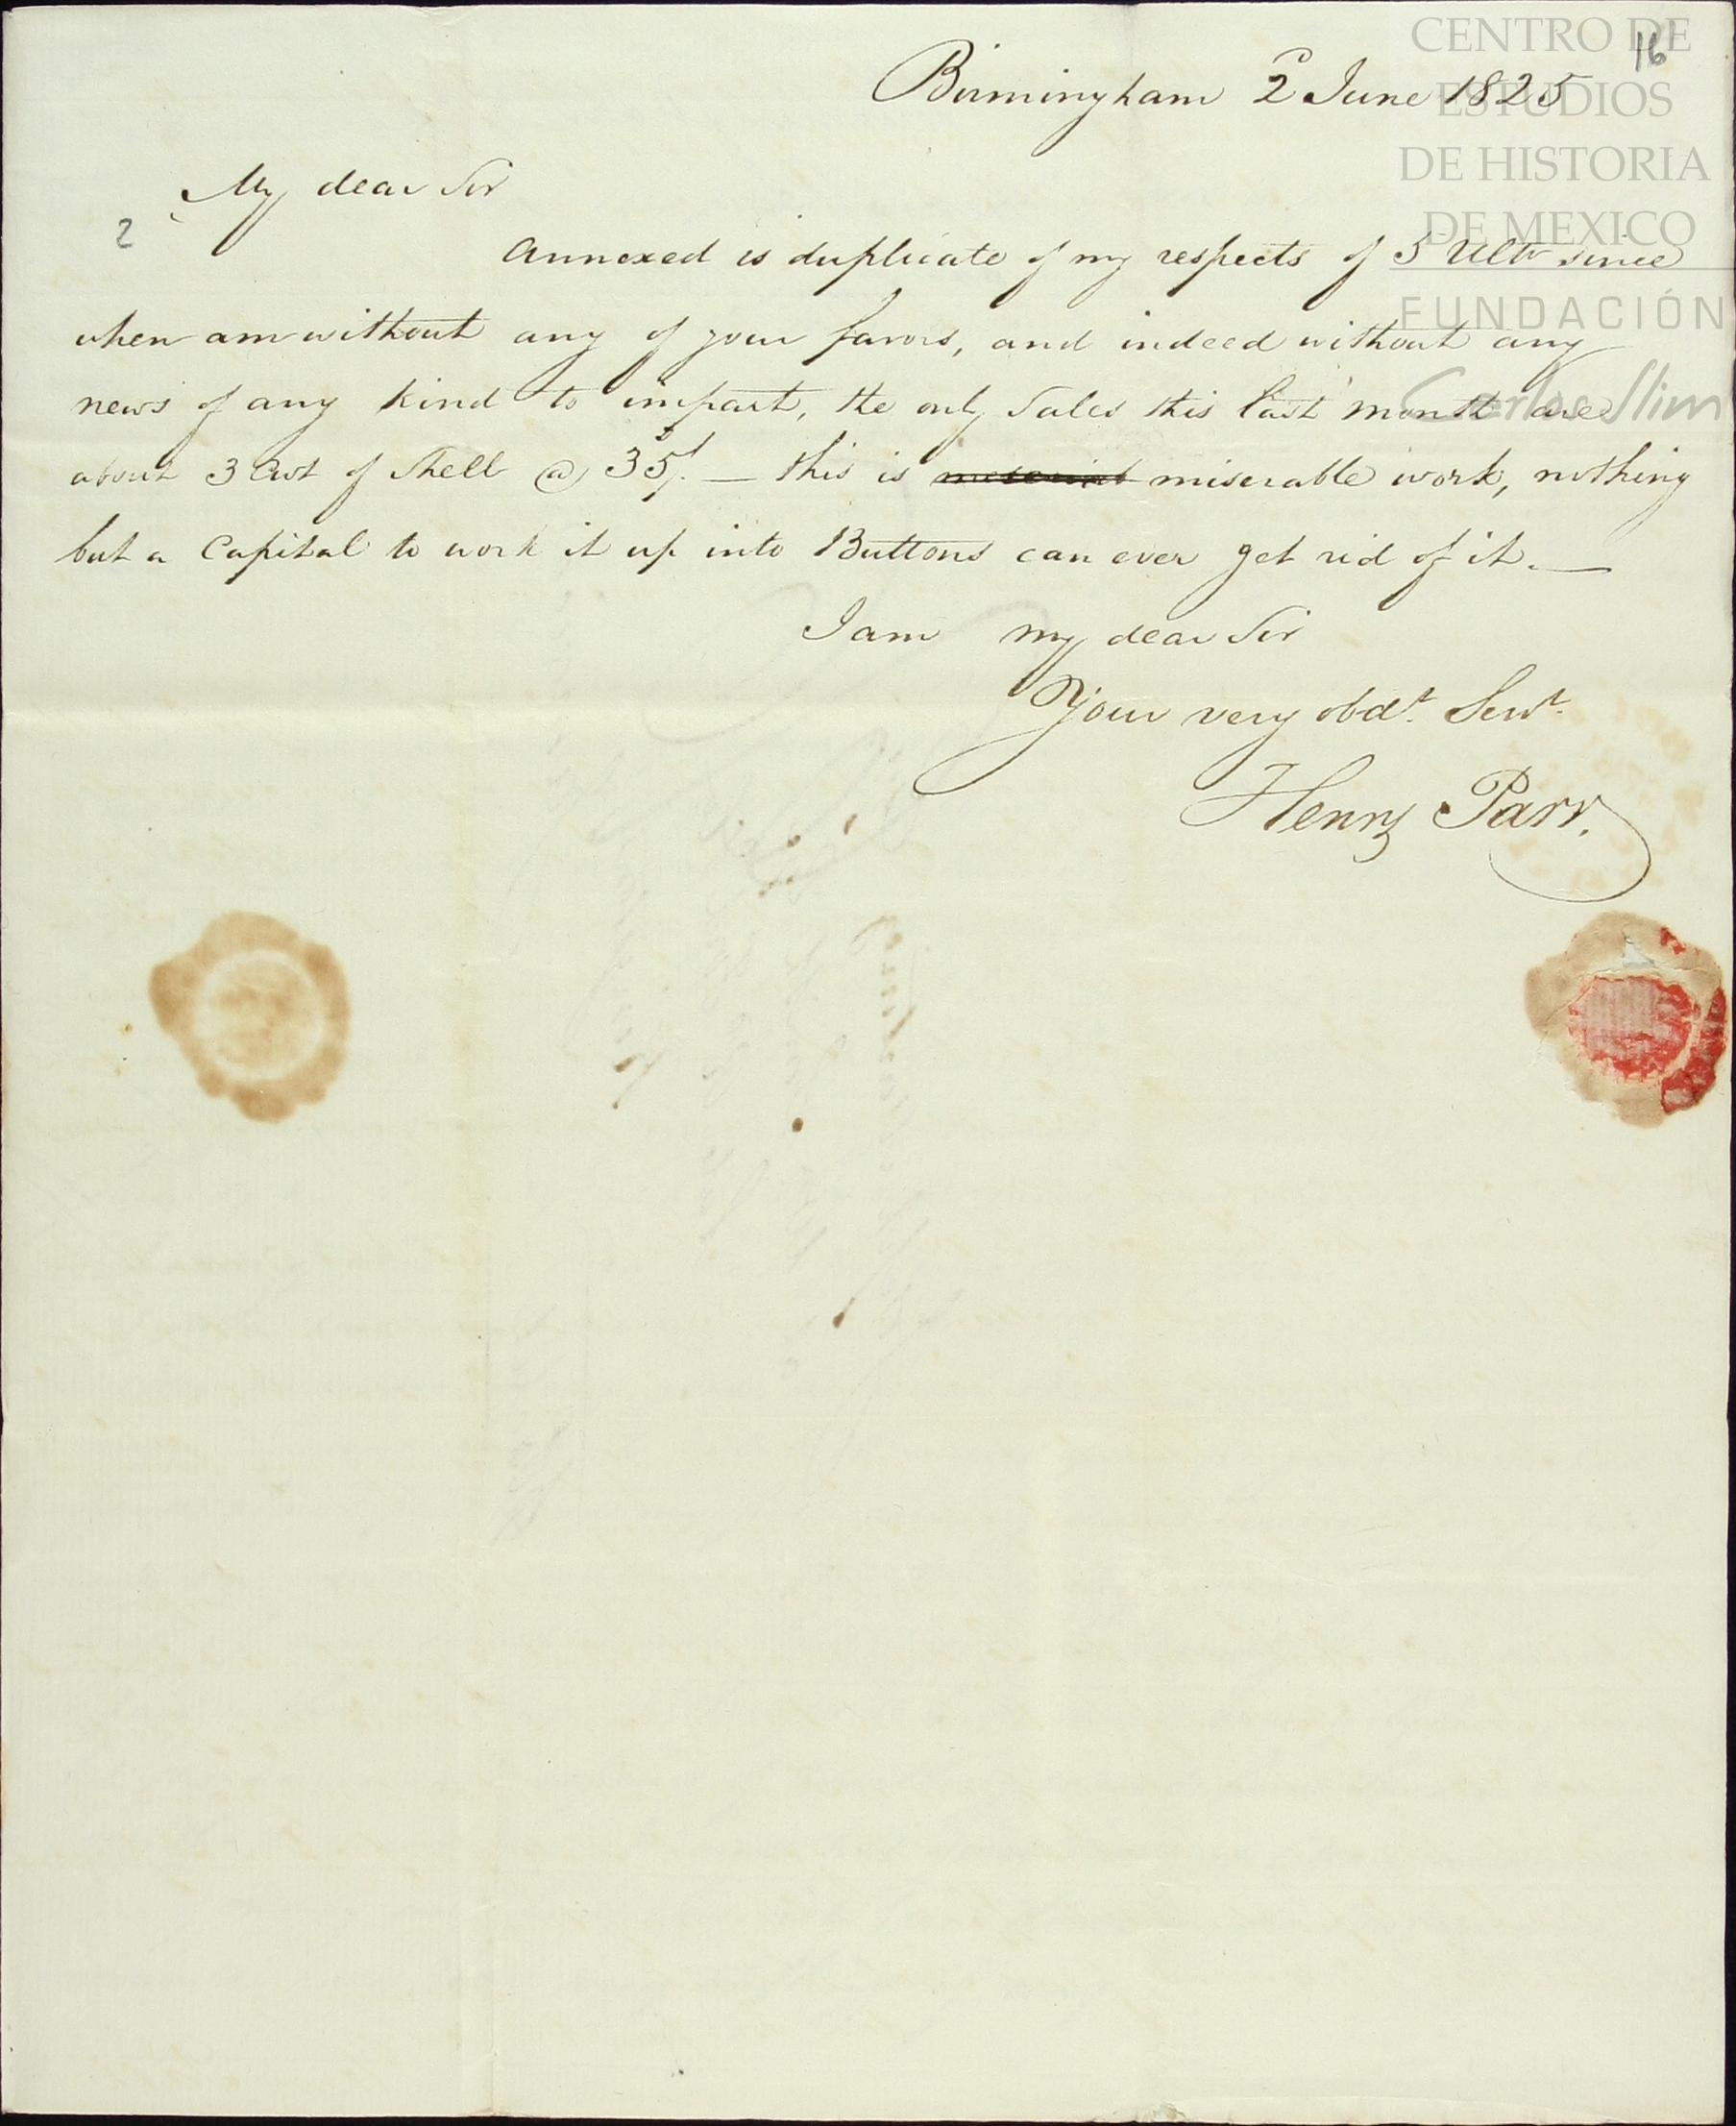 16
Birmingham 2 June 1825
My dear Sir
2
Annexed is duplicate of my respects of 5 Ulto since
when am without any of your favors, and indeed without any
news of any kind to impart, the only Sales this last month are
about 3 Cwt of Shell @ 35/. — this is miserable work, nothing
but a Capital to work it up into Buttons can ever get rid of it. —
I am my dear Sir
Your very obdt. Servt.
Henry Parr.
CENTRO DE
ESTUDIOS
DE HISTORIA
DE MEXICO
FUNDACIÓN
Carlos Slim